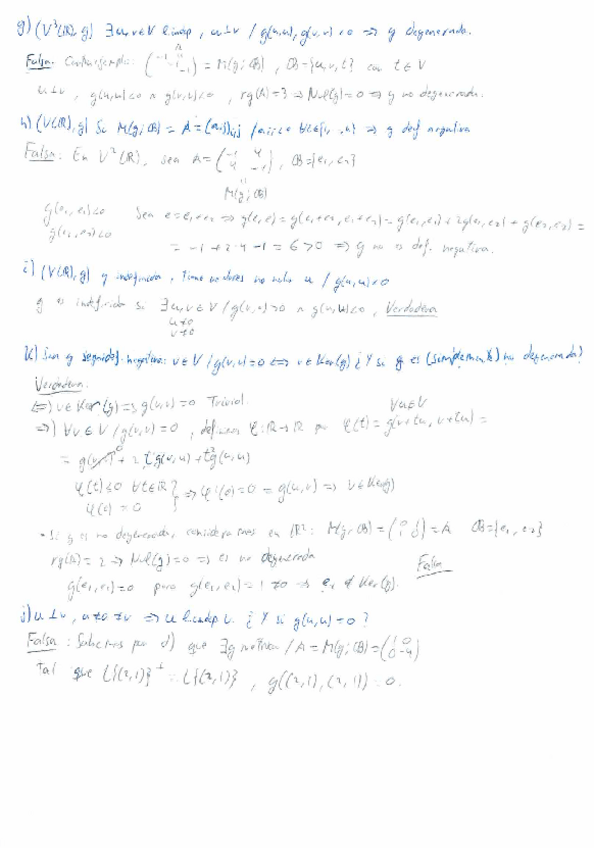 g) (V³(ℝ), g) ∃ u,v∈V l.indep, u⊥v / g(u,u), g(v,v)<0 ⟹ g degenerada.
Falsa. Contraejemplo: = M(g;B), B={u,v,t} con t∈V
u⊥v, g(u,u)<0 ∧ g(v,v)<0, rg(A)=3 ⟹ Nul(g)=0 ⟹ g no degenerada.
h) (V(ℝ),g) Si M(g;B) = A = (aij)i,j / aii<0 ∀i∈{1,..,n} ⟹ g def negativa
Falsa: En V²(ℝ), sea A = (-1 4
4 -1), B={e₁,e₂}
M(g;B)
g(e₁,e₁)<0
g(e₂,e₂)<0
Sea e=e₁+e₂ ⟹ g(e,e)=g(e₁+e₂,e₁+e₂)=g(e₁,e₁)+2g(e₁,e₂)+g(e₂,e₂)=
= -1+2·4-1=6>0 ⟹ g no es def. negativa.
i) (V(ℝ),g) g indefinida, tiene vectores no nulos u / g(u,u)=0
g es indefinida si ∃ u,v∈V / g(v,v)>0 ∧ g(u,u)<0, Verdadera
u≠0
v≠0
k) Sea g semidef. negativa: v∈V / g(v,v)=0 ⟺ v∈Ker(g) ¿Y si g es (simplemente) no degenerada?
Verdadera.
⟸) v∈Ker(g) ⟹ g(v,v)=0 Trivial.
∀u∈V
⟹) ∀v∈V / g(v,v)=0, definimos φ:ℝ→ℝ por φ(t)=g(v+tu, v+tu)=
= g(v,v) + 2tg(v,u)+t²g(u,u)
φ(t)≤0 ∀t∈ℝ
φ(0)=0 } ⟹ φ'(0)=0=g(u,v) ⟹ v∈Ker(g)
• Si g es no degenerada, consideramos en ℝ²: M(g,B)=(0 1
1 0)=A B={e₁,e₂}
rg(A)=2 ⟹ Nul(g)=0 ⟹ es no degenerada
g(e₁,e₁)=0 pero g(e₁,e₂)=1≠0 ⟹ e₁∉Ker(g).
Falsa
j) u⊥v, u≠0≠v ⟹ u l.indep v. ¿Y si g(u,u)=0?
Falsa: Sabemos por d) que ∃g métrica / A=M(g;B)=(1 0
0 -4)
Tal que L{(2,1)}⊥ = L{(2,1)}, g((2,1),(2,1))=0.